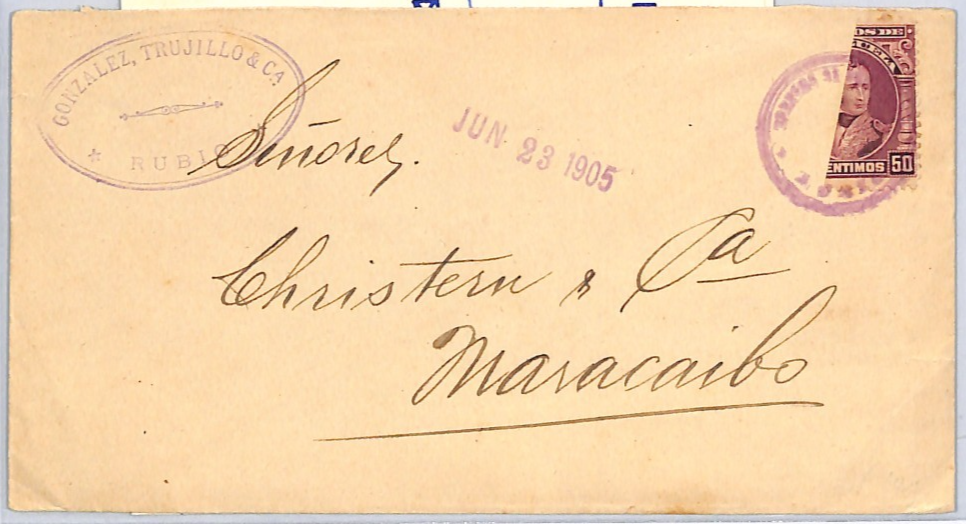 GONZALEZ, TRUJILLO & CA
RUBIO
Señores.
JUN 23 1905
OS DE
ZUELA
ENTIMOS 50
Christern & Ca
Maracaibo